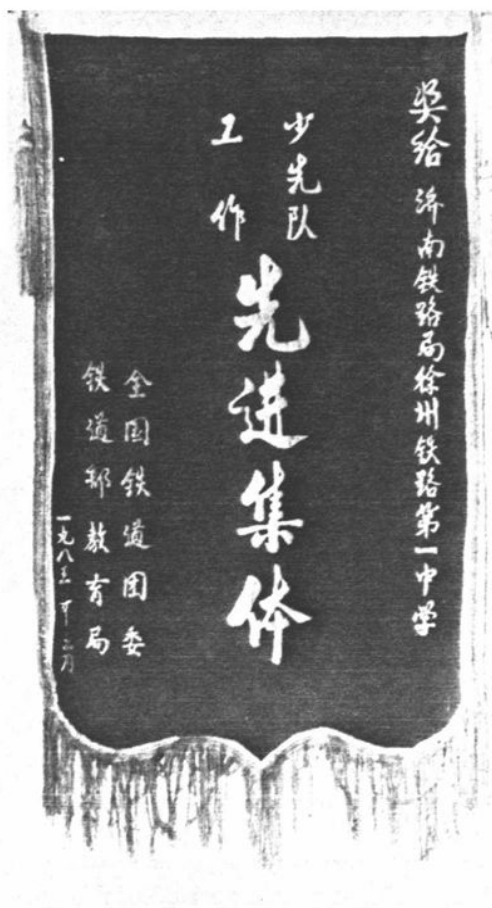 奖给 济南铁路局徐州铁路第一中学
少先队
工作
先进集体
全国铁道团委
铁道部教育局
一九八三年二月